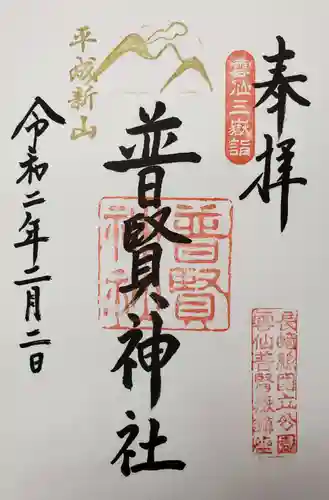 奉拝
雲仙三嶽詣
長崎県国立公園
雲仙普賢嶽鎮座
普賢神社
普賢
神社
平成新山
令和二年二月二日